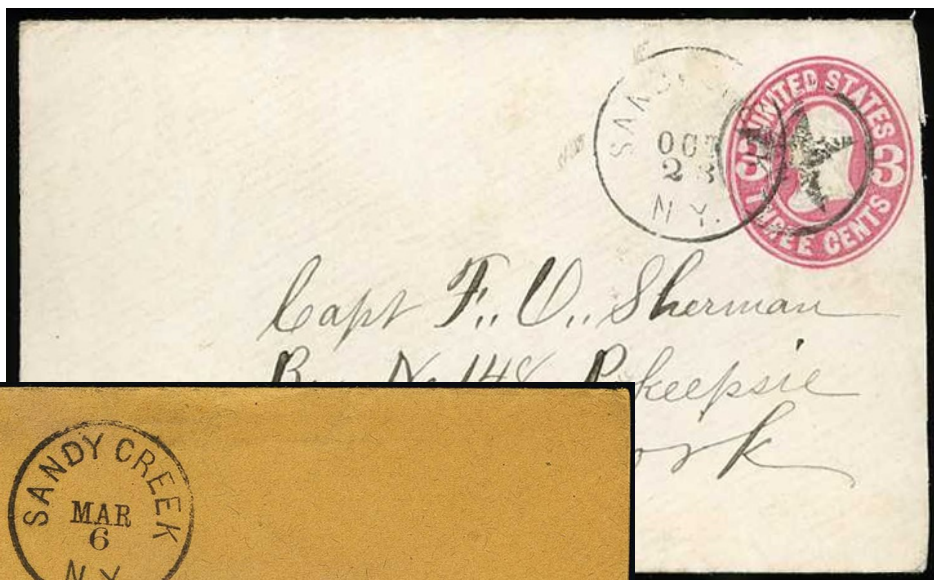 SANDY
OCT
23
N.Y.
UNITED STATES
3 3
THREE CENTS
Capt F. O. Sherman
No 148 Pokeepsie
SANDY CREEK
MAR
6
N.Y.